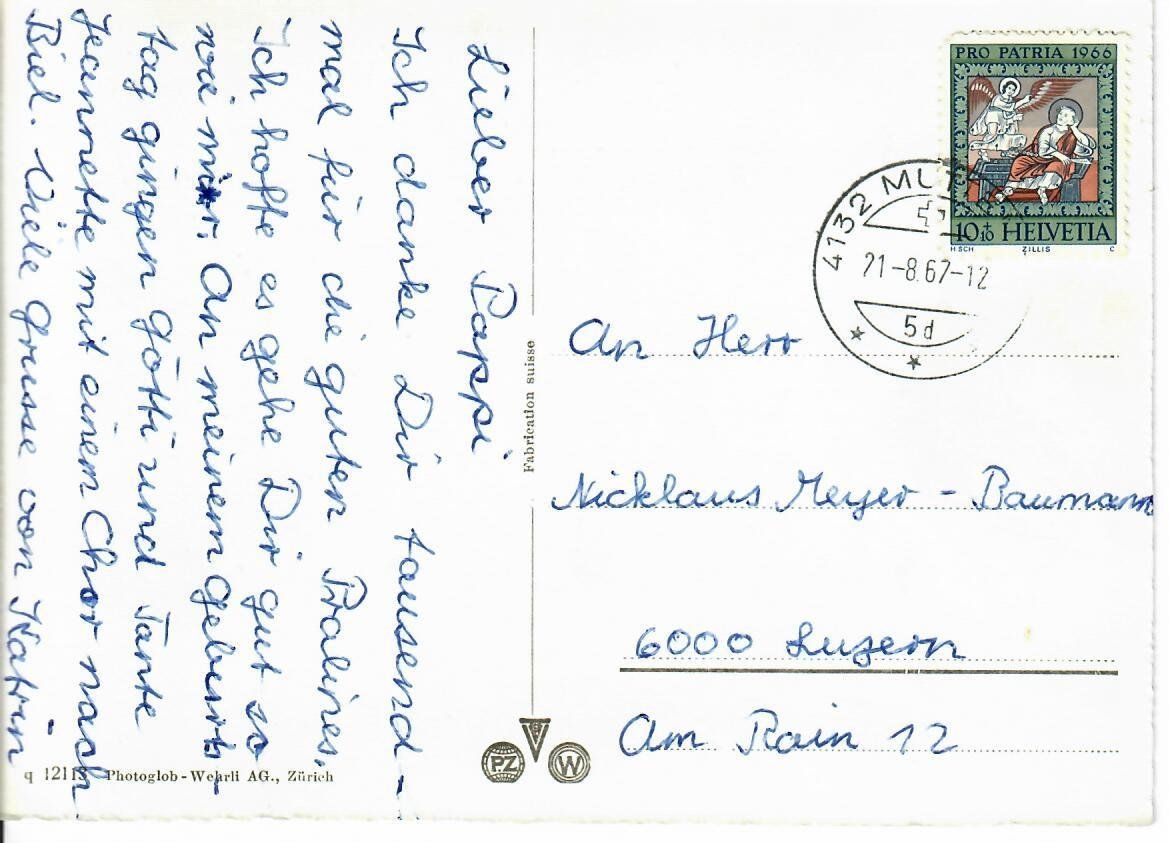 Lieber Pappi
Ich danke Dir tausend-
mal für die guten Pralines.
Ich hoffe es gehe Dir gut so
wie mir. An meinem Geburts-
tag gingen Götti und Tante
Jeannette mit einem Chor nach
Biel. Viele Grüsse von Katrin
q 12113 Photoglob-Wehrli AG., Zürich
Fabrication suisse
PZ
W
PRO PATRIA 1966
10+10 HELVETIA
H SCH ZILLIS C
4132 MUT
21-8.67-12
5d
An Herr
Nicklaus Meyer - Baumann
6000 Luzern
Am Rain 12